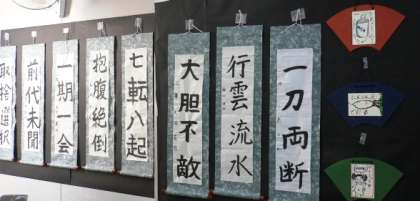 一刀両断
行雲流水
大胆不敵
七転八起
抱腹絶倒
一期一会
前代未聞
取捨選択